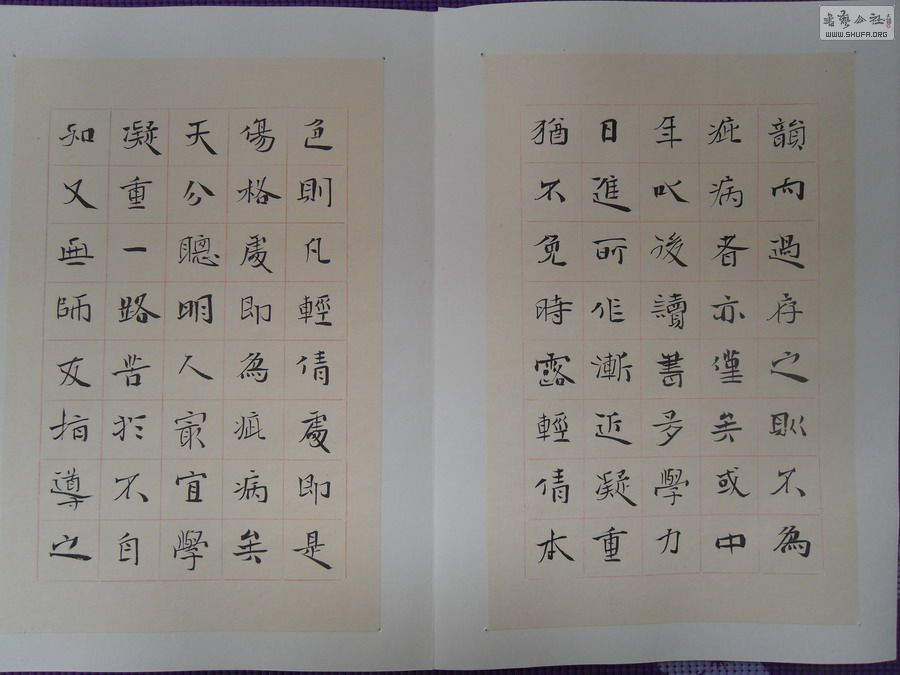 韻而過存之則不為
疵病者亦僅矣或中
年以後讀書多學力
日進所作漸近凝重
猶不免時露輕倩本
色則凡輕倩處即是
傷格處即為疵病矣
天分聰明人最宜學
凝重一路苦於不自
知又無師友指導之
書藝公社
WWW.SHUFA.ORG